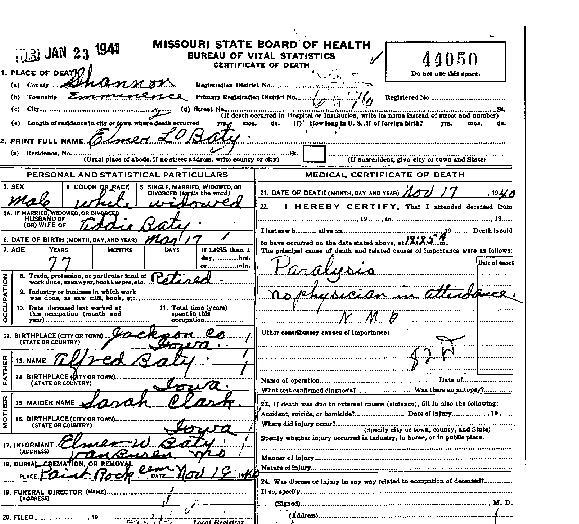 JAN 23 1941
MISSOURI STATE BOARD OF HEALTH
BUREAU OF VITAL STATISTICS
CERTIFICATE OF DEATH
44050
Do not use this space.
1. PLACE OF DEATH
(a) County Shannon Registration District No.
(b) Township Eminence Primary Registration District No. Registered No.
(c) City (d) Street No. St.
(If death occurred in Hospital or Institution, write its name instead of street and number)
(e) Length of residence in city or town where death occurred yrs. mos. ds. (f) How long in U. S. if of foreign birth? yrs. mos. ds.
2. PRINT FULL NAME Elmer L D Baty
(a) Residence, No. St.
(Usual place of abode, if no street address, write county or city) (If nonresident, give city or town and State)
PERSONAL AND STATISTICAL PARTICULARS
3. SEX 4. COLOR OR RACE 5. SINGLE, MARRIED, WIDOWED, OR DIVORCED (write the word)
male white widowed
5A. IF MARRIED, WIDOWED, OR DIVORCED
HUSBAND OF
(OR) WIFE OF Baty
6. DATE OF BIRTH (MONTH, DAY, AND YEAR) Mar 17
7. AGE YEARS MONTHS DAYS If LESS than 1 day, hrs. or min.
77
OCCUPATION
8. Trade, profession, or particular kind of work done, sawyer, bookkeeper, etc. Retired
9. Industry or business in which work was done, as saw mill, bank, etc.
10. Date deceased last worked at this occupation (month and year)
11. Total time (years) spent in this occupation
12. BIRTHPLACE (CITY OR TOWN) Jackson Co
(STATE OR COUNTRY) Iowa
FATHER
13. NAME Alfred Baty
14. BIRTHPLACE (CITY OR TOWN)
(STATE OR COUNTRY) Iowa
MOTHER
15. MAIDEN NAME Sarah Clark
16. BIRTHPLACE (CITY OR TOWN)
(STATE OR COUNTRY) Iowa
17. INFORMANT Elmer W. Baty
(ADDRESS) Van Buren Mo
18. BURIAL, CREMATION, OR REMOVAL
PLACE Paint Rock cem DATE Nov 18
19. FUNERAL DIRECTOR (NAME)
(ADDRESS)
20. FILED , 19
Local Registrar
MEDICAL CERTIFICATE OF DEATH
21. DATE OF DEATH (MONTH, DAY, AND YEAR) Nov 17 1940
22. I HEREBY CERTIFY, That I attended deceased from
, 19 , to , 19
I last saw h alive on , 19 Death is said
to have occurred on the date stated above, at
The principal cause of death and related causes of importance were as follows:
Date of onset
Paralysis
no physician in attendance
Other contributory causes of importance:
Name of operation Date of
What test confirmed diagnosis? Was there an autopsy?
23. If death was due to external causes (violence), fill in also the following:
Accident, suicide, or homicide? Date of injury , 19
Where did injury occur?
(Specify city or town, county, and State)
Specify whether injury occurred in industry, in home, or in public place.
Manner of injury
Nature of injury
24. Was disease or injury in any way related to occupation of deceased?
If so, specify
(Signed) M. D.
(Address)